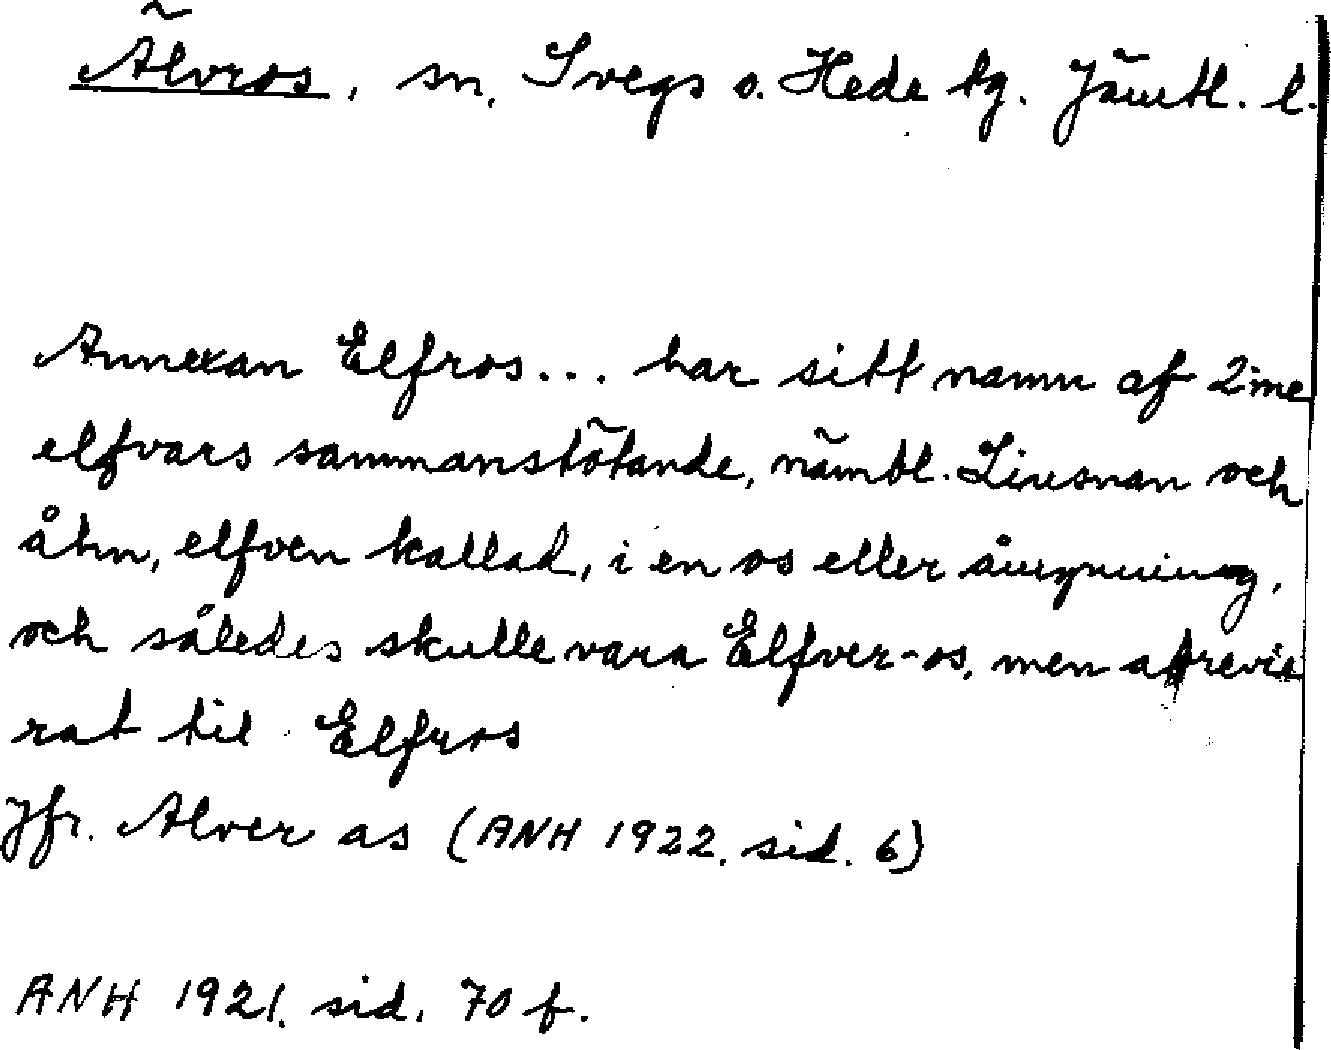 Älvros, sn, Svegs o. Hede tg. Jämtl. l.
Annexan Elfros... har sitt namn af 2:me
elfvars sammanstötande, nämbl. Liusnan och
åhn, elfven kallad, i en os eller åmynning,
och således skulle vara Elfver-os, men abrevie
rat til Elfros
Jfr. Alver as (ANH 1922. sid. 6)
ANH 1921. sid. 70 f.